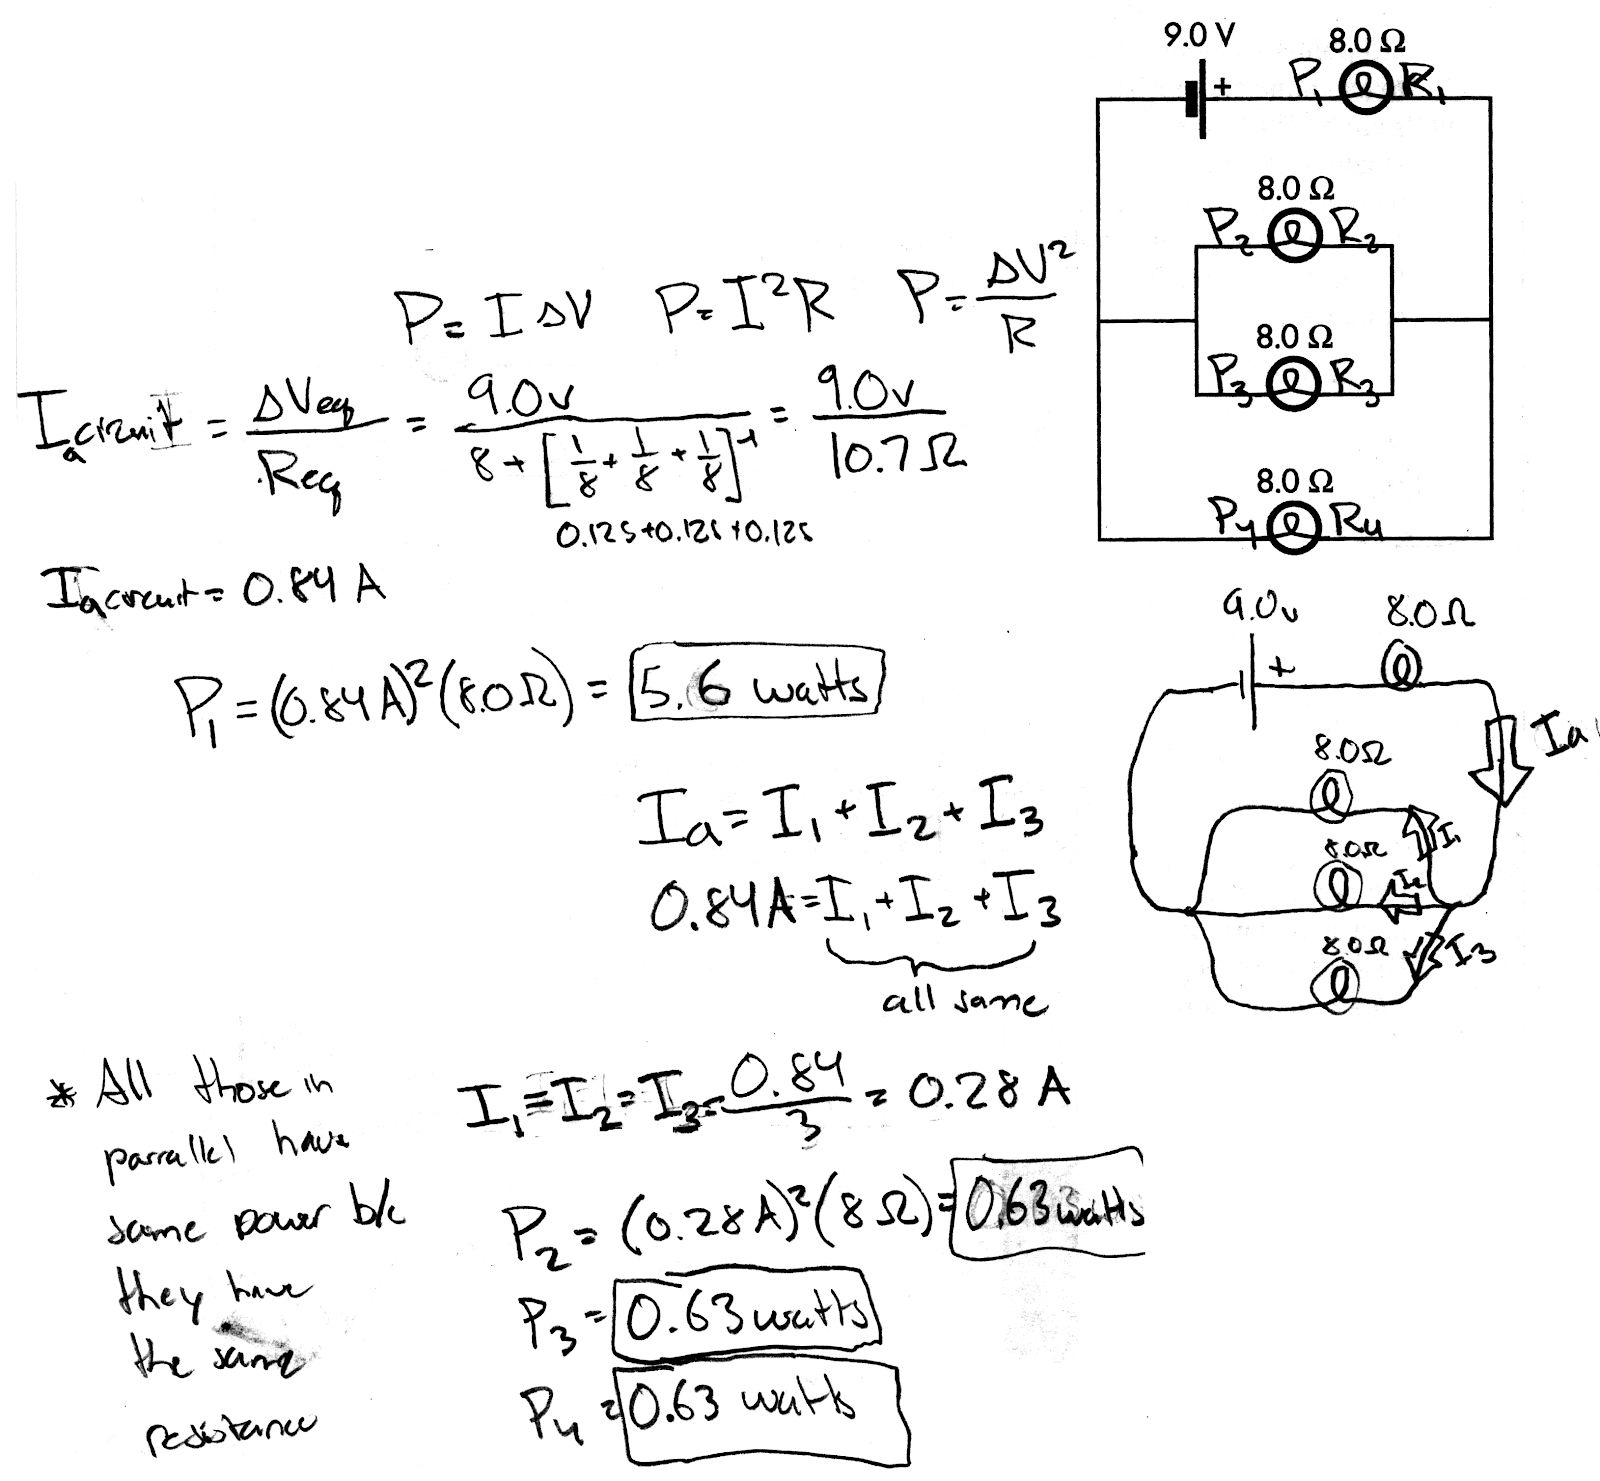 9.0 V 8.0 Ω
+ P₁ R₁
8.0 Ω
P₂ R₂
8.0 Ω
P₃ R₃
8.0 Ω
P₄ R₄
P = I ΔV P = I²R P = ΔV²/R
I_a circuit = ΔVeq/Req = 9.0v/(8 + [1/8 + 1/8 + 1/8]⁻¹) = 9.0v/10.7Ω
0.125+0.125+0.125
I_a circuit = 0.84 A
P₁ = (0.84A)²(8.0Ω) = 5.6 watts
9.0v 8.0Ω
+
Ia
8.0Ω
I₁
8.0Ω
I₂
8.0Ω
I₃
Ia = I₁ + I₂ + I₃
0.84A = I₁ + I₂ + I₃
all same
* All those in
parrallel have
same power b/c
they have
the same
resistance
I₁ = I₂ = I₃ = 0.84/3 = 0.28 A
P₂ = (0.28A)²(8 Ω) = 0.63 watts
P₃ = 0.63 watts
P₄ = 0.63 watts